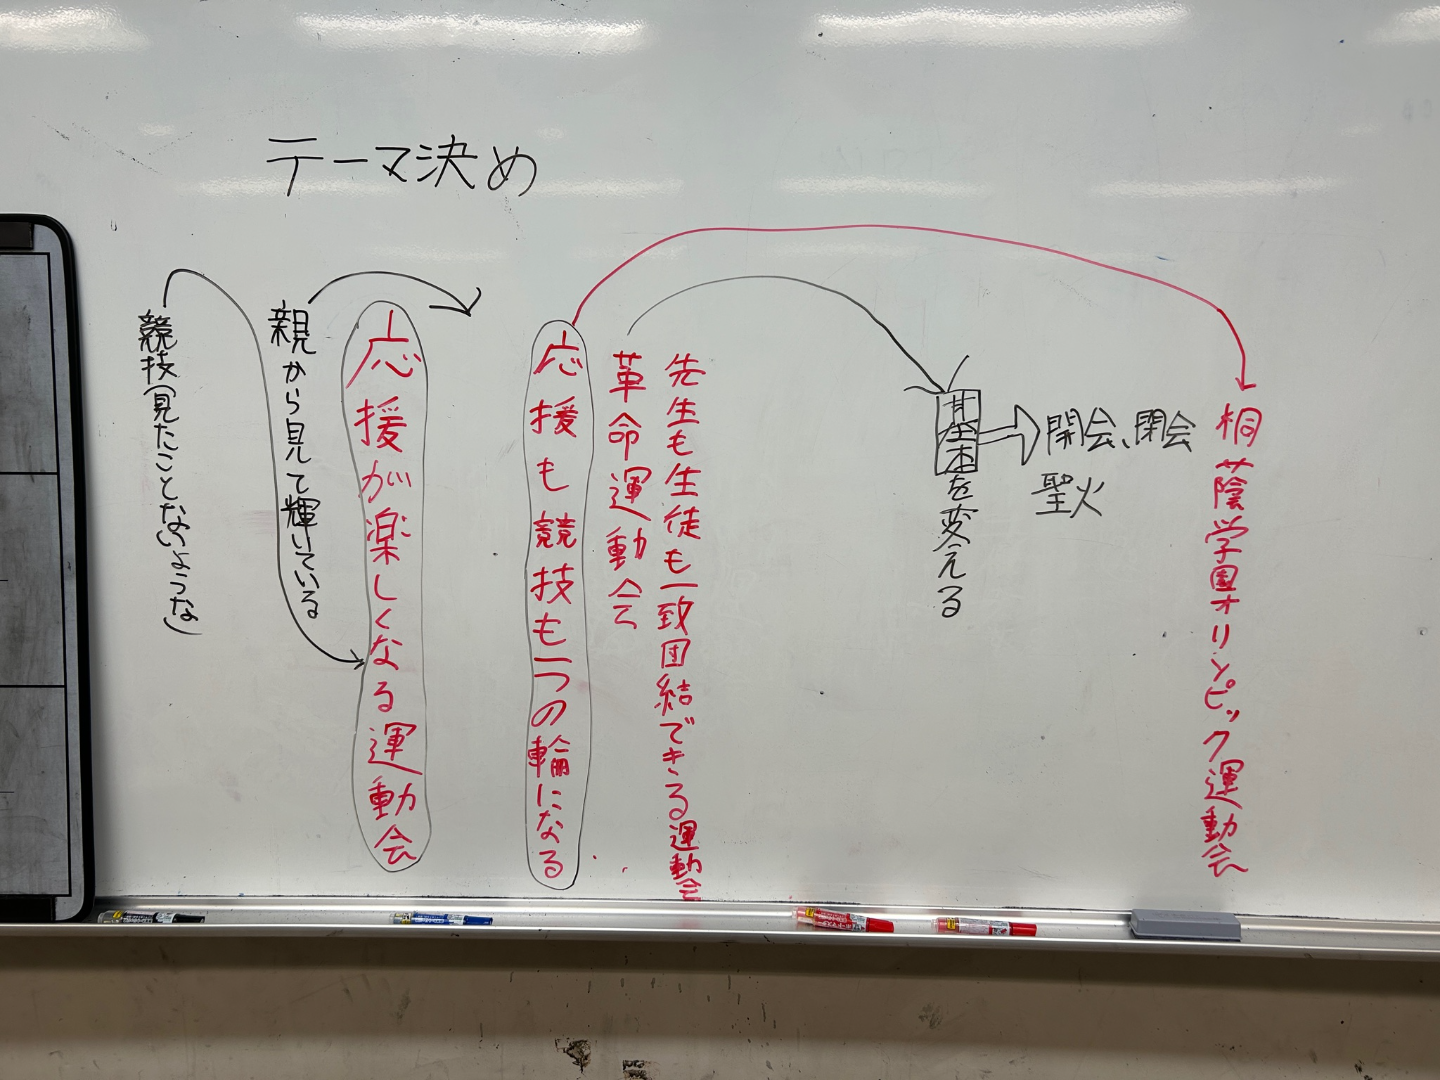 テーマ決め
桐蔭学園オリンピック運動会
基本を変える
開会、閉会
聖火
先生も生徒も一致団結できる運動会
革命運動会
応援も競技も一つの輪になる
応援が楽しくなる運動会
親から見て輝いている
競技(見たことないような)